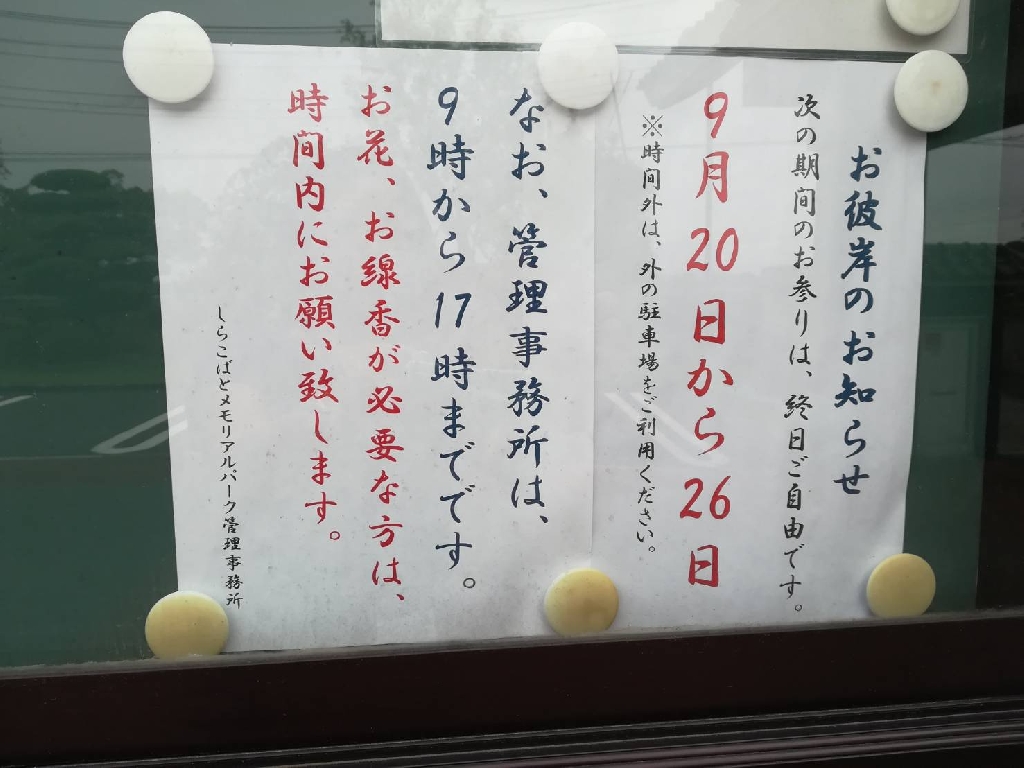 お彼岸のお知らせ
次の期間のお参りは、終日ご自由です。
9月20日から26日
※時間外は、外の駐車場をご利用ください。
なお、管理事務所は、
9時から17時までです。
お花、お線香が必要な方は、
時間内にお願い致します。
しらこばとメモリアルパーク管理事務所